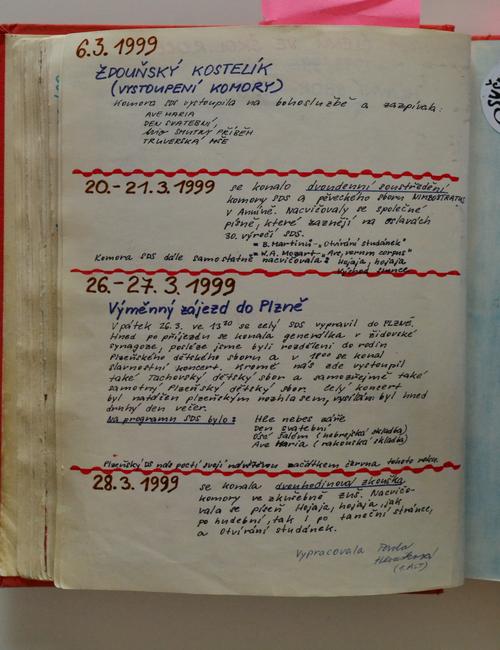 6.3. 1999
ŽDOUŇSKÝ KOSTELÍK
(VYSTOUPENÍ KOMORY)
Komora SDS vystoupila na bohoslužbě a zazpívala:
AVE MARIA
DEN SVATEBNÍ,
SMUTNÝ PŘÍBĚH
TRUVERSKÁ MŠE
20.-21.3.1999 se konalo dvoudenní soustředění
komory SDS a pěveckého sboru NIMBOSTRATUS
v Anníně. Nacvičovaly se společné
písně, které zazněji na oslavách
30. výročí SDS.
B. Martinů - „Otvírání studánek"
W.A. Mozart - „Ave, verum corpus"
Komora SDS dále samostatně nacvičovala: Hojaja, hojaja
východ slunce
26.-27. 3. 1999
Výměnný zájezd do Plzně
V pátek 26.3. ve 13 30 se celý SDS vypravil do PLZNĚ.
Hned po příjezdu se konala generálka v židovské
synagoze, posléze jsme byli rozděleni do rodin
Plzeňského dětského sboru a v 18 00 se konal
slavnostní koncert. Kromě nás zde vystoupil
také Tachovský dětský sbor a samozřejmě také
samotný Plzeňský dětský sbor. Celý koncert
byl natáčen plzeňským rozhlasem, vysílám byl hned
druhý den večer.
Na programu SDS bylo: Hle nebes záře
Den svatební
Osé šalom (hebrejská skladba)
Ave Maria (rakouská skladba)
Plzeňský DS nás poctí svojí návštěvou začátkem června tohoto roku.
28.3. 1999 se konala dvouhodinová zkouška
komory ve zkušebně ZUŠ. Nacvičo-
vala se píseň Hojaja, hojaja, jak
po hudební, tak i po taneční stránce,
a Otvírání studánek.
Vypracovala Pavla
(1. ALT)